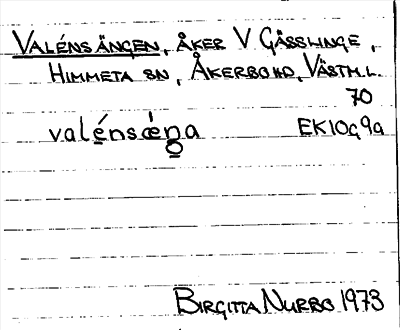 VALÉNSÄNGEN, ÅKER V GÄSSLINGE,
HIMMETA SN, ÅKERBO HD, VÄSTM.L.
70
valénsæ̀ŋa EK10G9a
BIRGITTA NURBO 1973